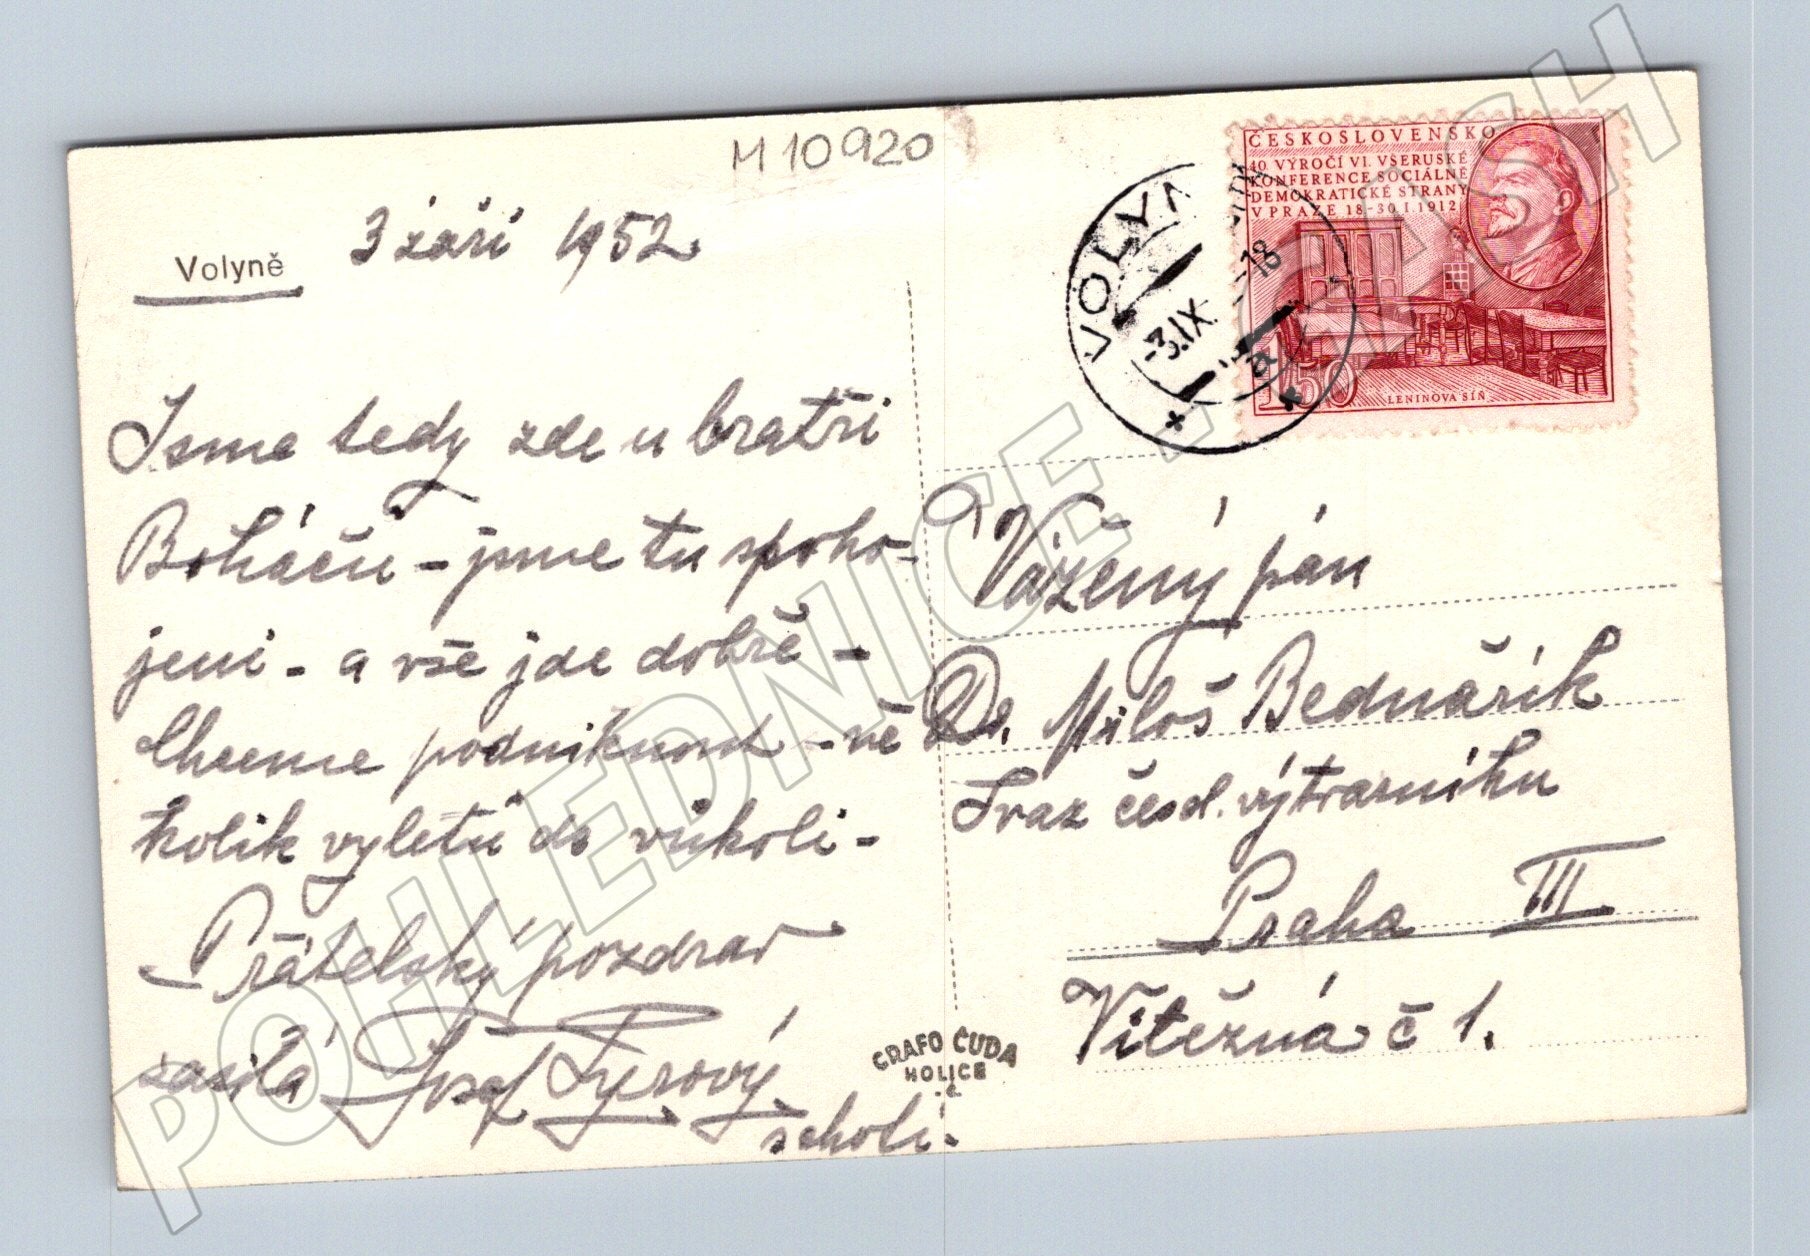 M 10920
Volyně
3 září 1952
Jsme tedy zde u bratří
Boháčů – jsme tu spoko-
jeni – a vše jde dobře –
Chceme podniknout – ně
kolik vyletů do vůkoli –
Přátelský pozdrav
zasílá Josef
s choti.
ČESKOSLOVENSKO
40 VÝROČÍ VI. VŠERUSKÉ
KONFERENCE SOCIÁLNĚ
DEMOKRATICKÉ STRANY
V PRAZE 18-30.I.1912
150
LENINOVA SÍŇ
VOLYN
-3.IX.
-18
a
Vážený pán
Dr. Miloš Bednářík
Svaz česl. výtvarníku
Praha III
Vítězná č 1.
GRAFO ČUDA
HOLICE
POHLEDNICE